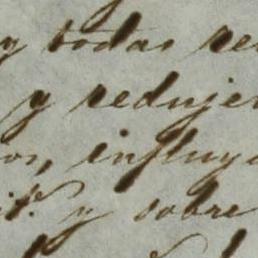 y todas
y redujer
os, influy
y sobre